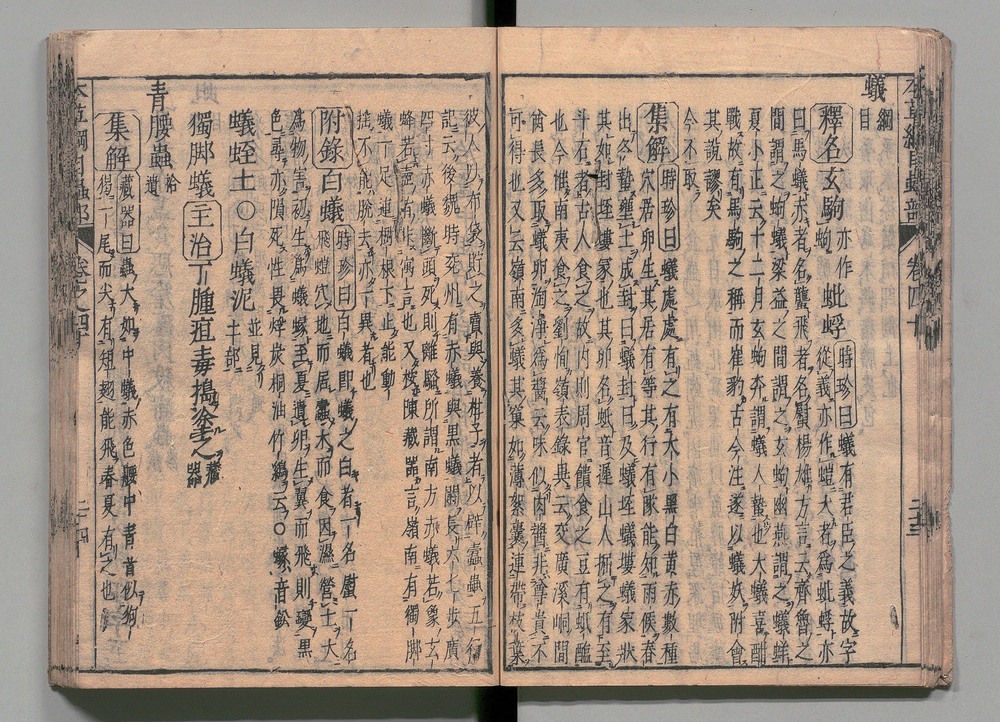 蟻 綱目
釋名 玄駒 亦作蚼 蚍蜉 時珍曰蟻有君臣之義故字
從義亦作螘大者爲蚍蜉亦
曰馬蟻赤者名蠪飛者名螱楊雄方言云齊魯之
間謂之蚼蟻梁益之間謂之玄蚼幽燕謂之蟻蛘
夏小正云十二月玄蚼奔謂蟻入蟄也大蟻喜酣
戰故有馬駒之稱而崔豹古今注遂以蟻妖附會
其說謬矣
今不取
集解 時珍曰蟻處處有之有大小黑白黃赤數種
穴居卵生其居有等其行有隊能知雨候春
出冬蟄壅土成封曰蟻封曰及蟻垤蟻塿蟻冢狀
其如封垤塿冢也其卵名蚳音遲山人掘之有至
斗石者古人食之故内則周官饋食之豆有蚳醢
也今惟南夷食之劉恂嶺表錄異云交廣溪峒間
酋長多取蟻卵淘淨爲醬云味似肉醬非尊貴不
可得也又云嶺南多蟻其窠如薄絮囊連帶枝葉
彼人以布袋貯之賣與養柑子者以辟蠹蟲五行
記云後魏時兗州有赤蟻與黑蟻鬭長六七步廣
四寸赤蟻斷頭死則離騷所謂南方赤蟻若象玄
蜂若壺者非寓言也又按陳藏器言嶺南有獨脚
蟻一足連樹根下止能動
搖不能脫去亦一異者也
附錄 白蟻 時珍曰白蟻卽蟻之白者一名螱一名
飛螘穴地而居蠹木而食因濕營土大
爲物害初生爲蟻蝝至夏遺卵生翼而飛則變黑
色尋亦隕死性畏烰炭桐油竹雞云〇蝝音鉛
蟻蛭土〇白蟻泥 並見土部
獨脚蟻 主治 丁腫疽毒搗塗之 藏器
青腰蟲 拾遺
集解 藏器曰蟲大如中蟻赤色腰中青首似狗
猲一尾而尖有短翅能飛春夏有之也